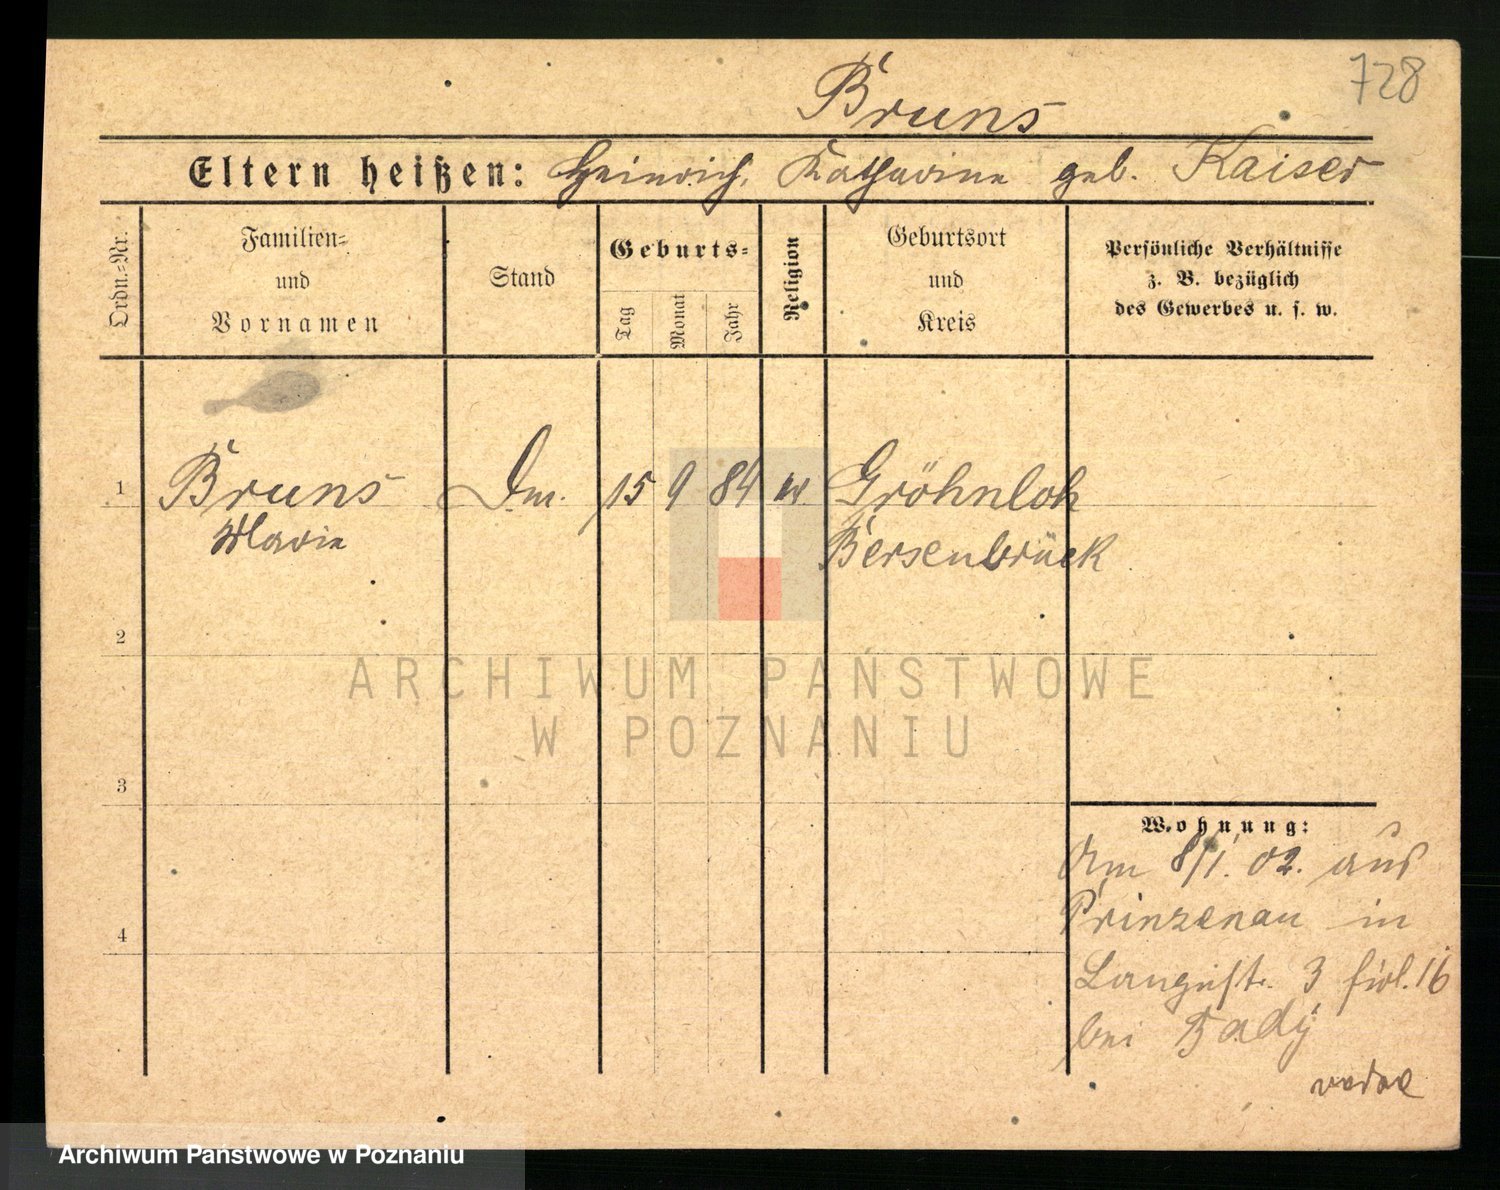 728
Bruns
Eltern heißen: Heinrich, Katharine geb. Kaiser
Ordn.-Nr.
Familien-
und
Vornamen
Stand
Geburts-
Tag
Monat
Jahr
Religion
Geburtsort
und
Kreis
Persönliche Verhältnisse
z. B. bezüglich
des Gewerbes u. s. w.
1 Bruns Dm. 15 9 84 Gröhnloh
Marie Bersenbrück
2
3
4
Wohnung:
Am 8/1. 02. aus
Prinzenau in
Langestr. 3 fixl. 16
bei
ARCHIWUM PAŃSTWOWE
W POZNANIU
Archiwum Państwowe w Poznaniu